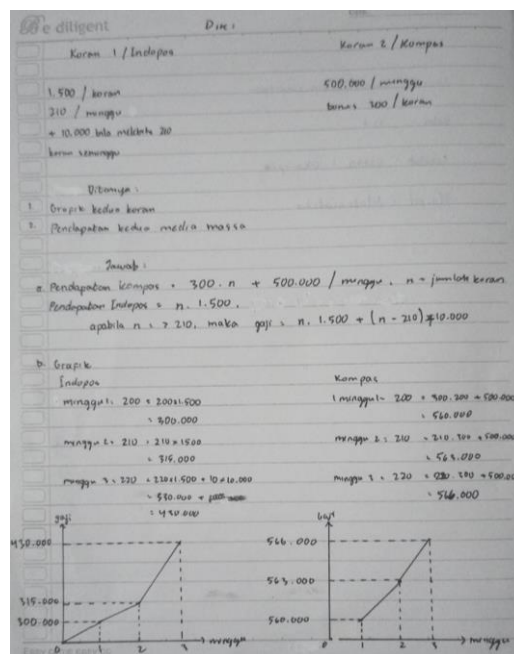 e diligent
Dik :
Koran 1 / Indopos
Koran 2 / Kompas
1.500 / koran
210 / minggu
+ 10.000 bila melebihi 210
koran seminggu
500.000 / minggu
bonus 300 / koran
Ditanya :
1. Grafik kedua koran
2. Pendapatan kedua media massa
Jawab :
a. Pendapatan kompas = 300. n + 500.000 / minggu. n = jumlah koran
Pendapatan Indopos = n. 1.500.
apabila n : > 210, maka gaji : n. 1.500 + (n - 210) 10.000
b. Grafik
Indopos
minggu 1: 200 = 200x1.500
= 300.000
minggu 2 : 210 = 210 x 1500
= 315.000
minggu 3 : 220 = 220x1.500 + 10 x 10.000
= 330.000 +
= 430.000
Kompas
minggu 1 = 200 = 300. 200 + 500.000
= 560.000
minggu 2 : 210 = 210. 300 + 500.000
= 563.000
minggu 3 : 220 = 220. 300 + 500.0
= 566.000
gaji
430.000
315.000
300.000
0 1 2 3 minggu
Gaji
566.000
563.000
560.000
0 1 2 3 minggu